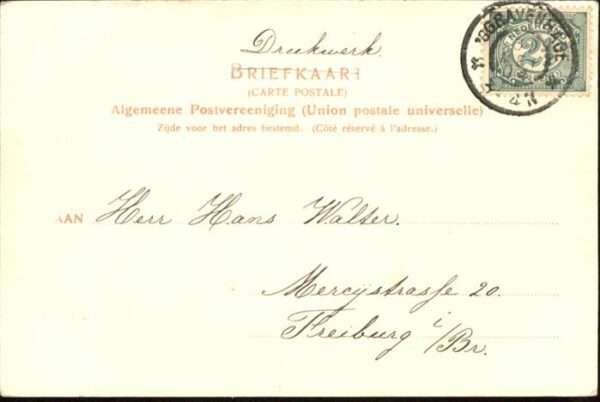 Drukwerk.
BRIEFKAART
(CARTE POSTALE)
Algemeene Postvereeniging (Union postale universelle)
Zijde voor het adres bestemd. (Côté réservé à l'adresse.)
'SGRAVENHAGE
2
AAN Herr Hans Walter.
Mercystrasse 20.
Freiburg i/Br.